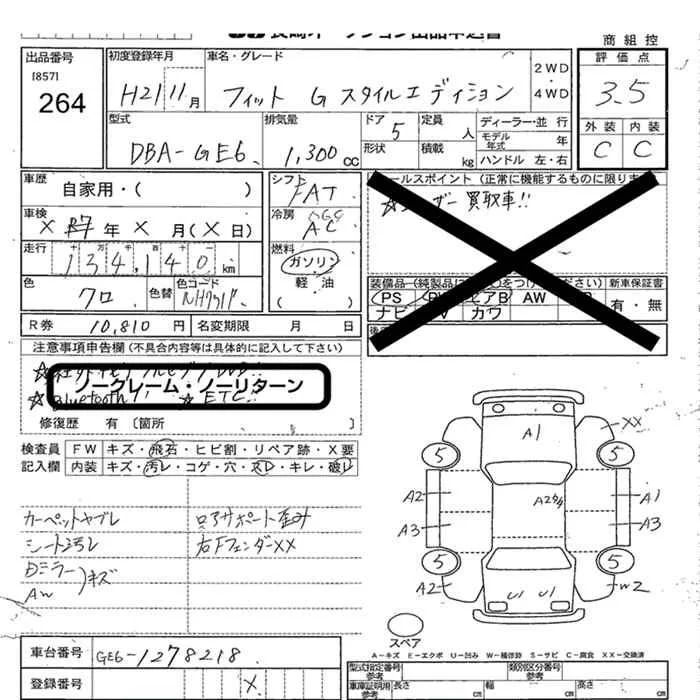 商組控
出品番号
[857]
264
初度登録年月
H21 11月
車名・グレード
フィット G スタイルエディション
2WD
4WD
評価点
3.5
外装 内装
C C
型式
DBA-GE6
排気量
1,300cc
ドア
5
形状
定員 人
積載 kg
ディーラー・並行
モデル年式 年
ハンドル 左・右
車歴
自家用・( )
車検
年 X 月(X 日)
走行
134,140km
色
クロ
色替
色コード
シフト
FAT
冷房
AC
燃料
ガソリン
軽油
セールスポイント (正常に機能するものに限ります
ユーザー買取車!!
PS
エアB AW
ナビ
カワ
新車保証書
有・無
R券 10,810円
名変期限 月 日
注意事項申告欄(不具合内容等は具体的に記入して下さい)
ノークレーム・ノーリターン
☆Bluetooth!! ☆ETC!!
修復歴 有〔箇所 〕
検査員 FW キズ・飛石・ヒビ割・リペア跡・X要
記入欄 内装 キズ・汚レ・コゲ・穴・スレ・キレ・破レ
カーペットヤブレ
シート汚レ
Dミラー
AW
キズ
コアサポート歪み
右Fフェンダーxx
A1
XX
5 5
A2 A2 A1
A3 A3
5 5
A2 U1 U1 W2
スペア
A-キズ E-エクボ U-凹み W-補修跡 S-サビ C-腐食 XX-交換済
車台番号 GE6-1278218
登録番号 X
型式指定番号 参考
類別区分番号 参考
車庫証明用 参考 長さ cm 幅 cm 高さ cm